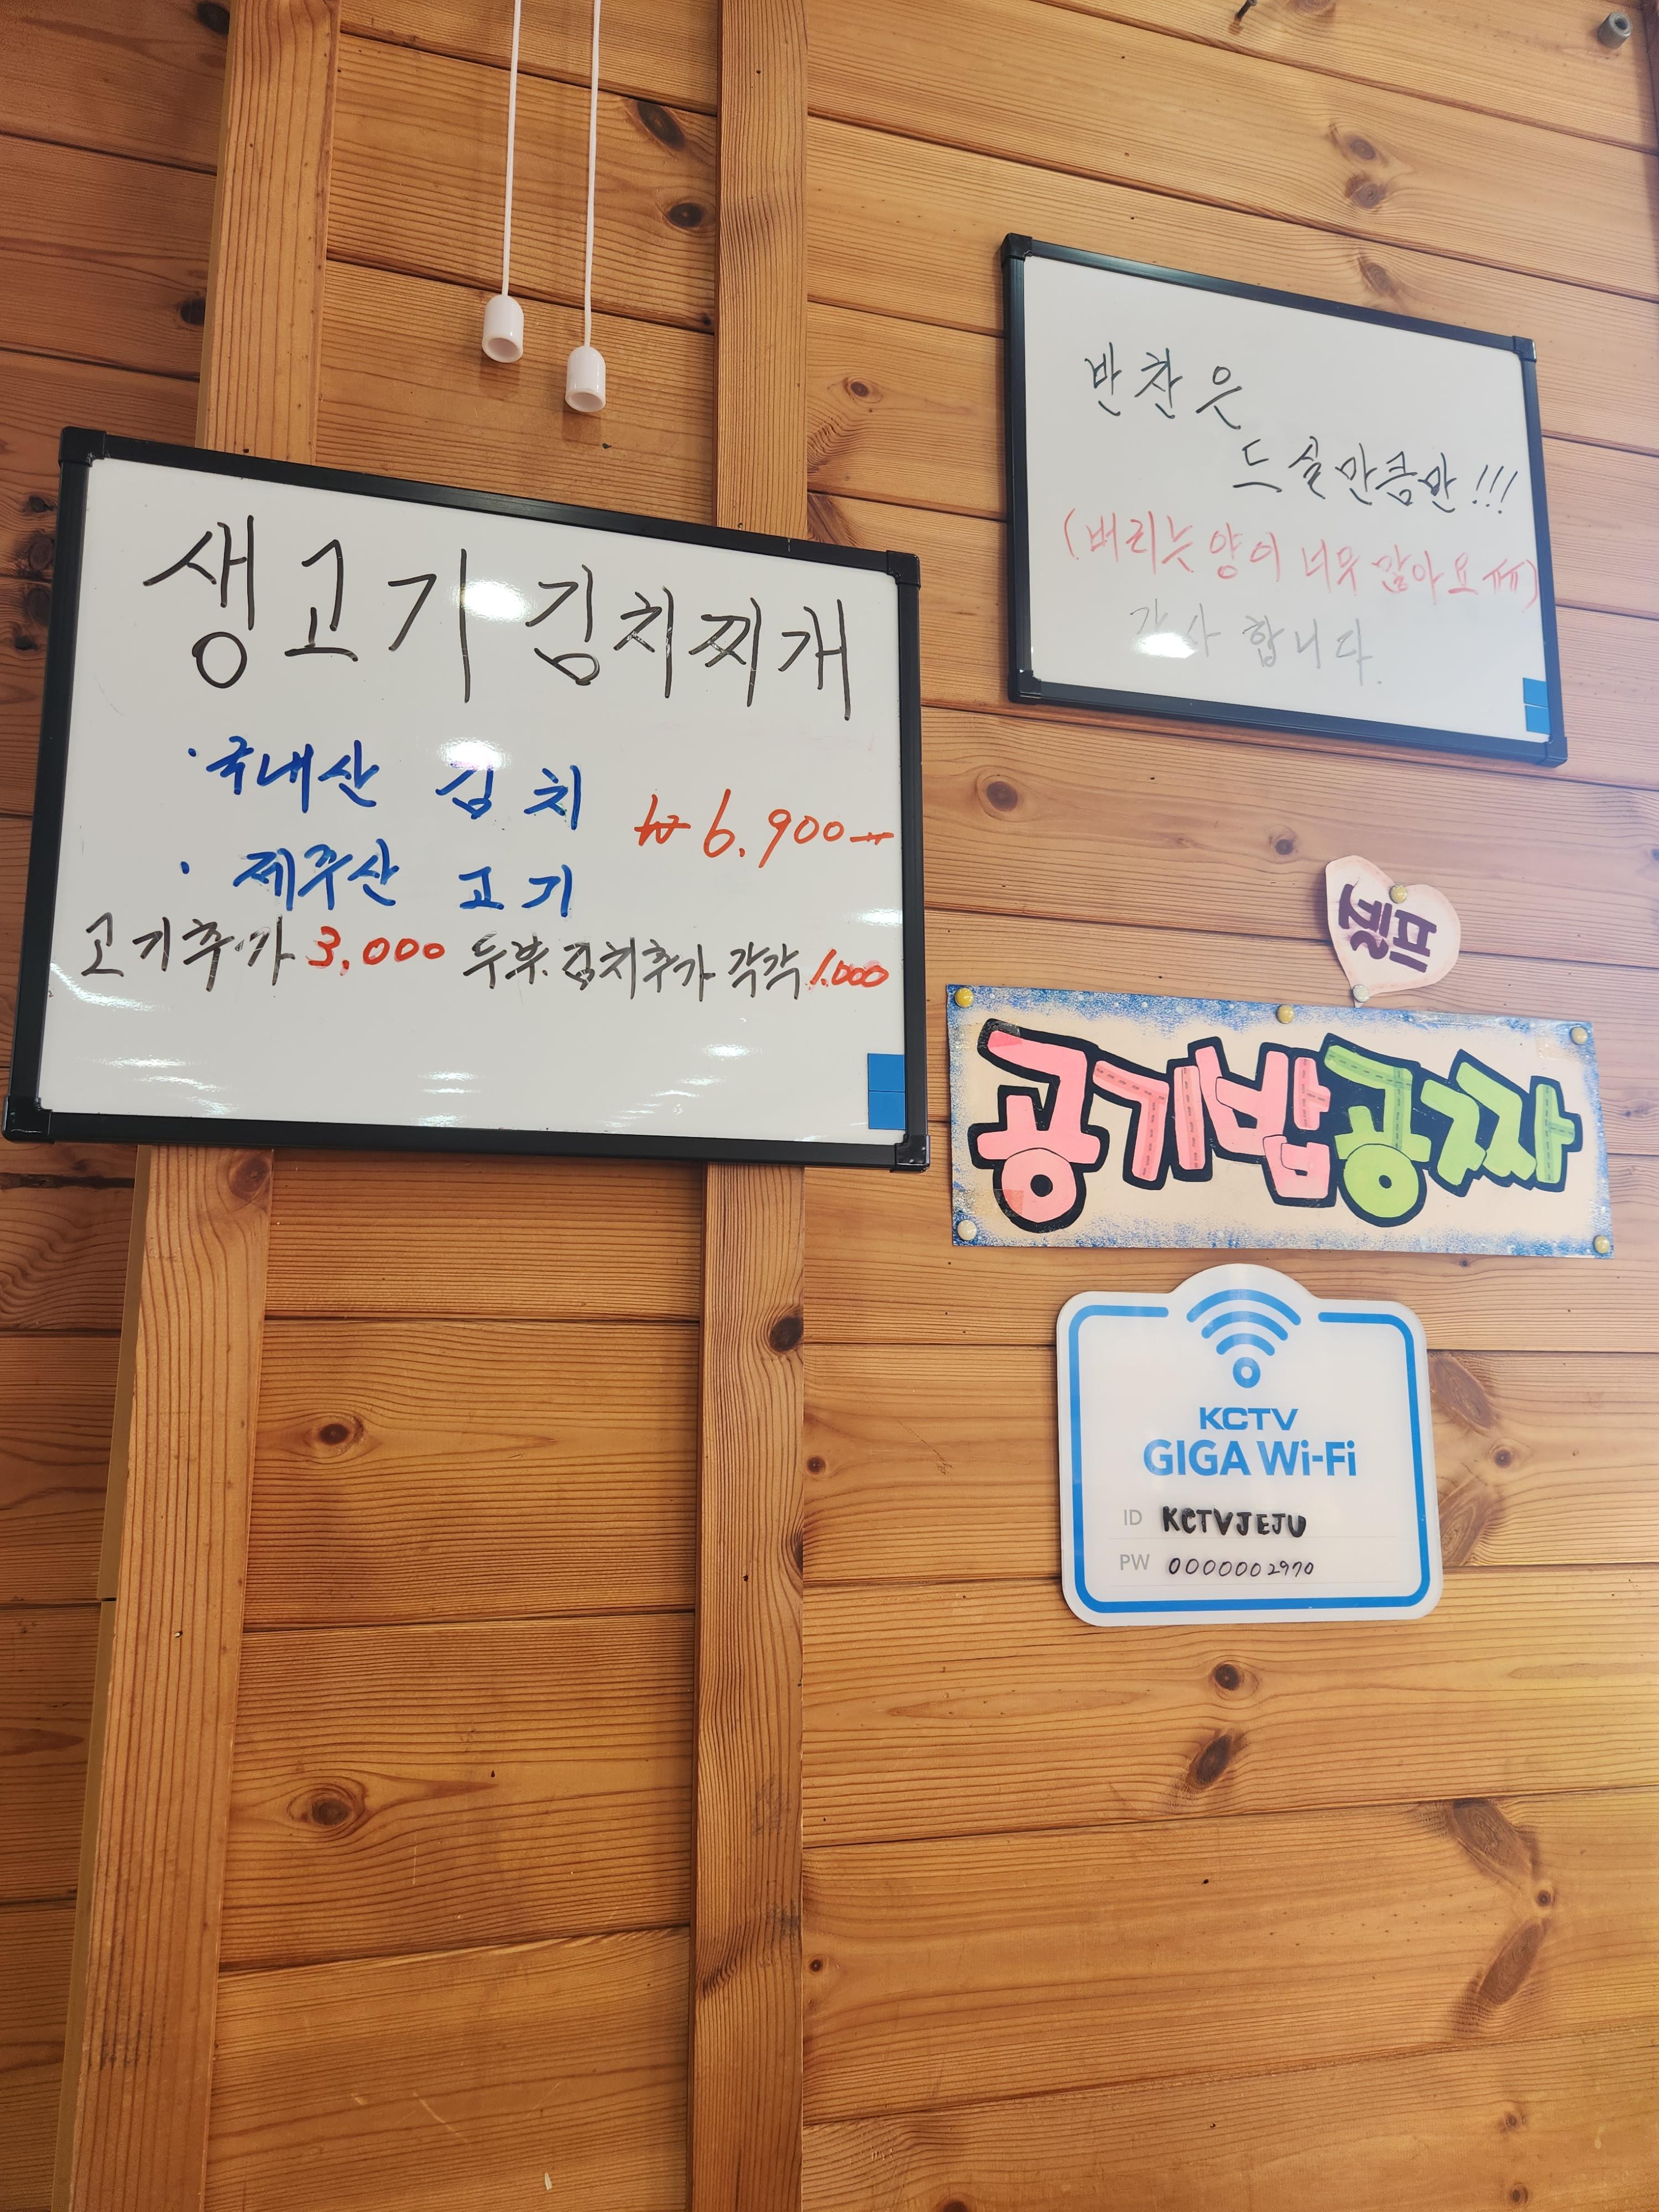 생고기 김치찌개
· 국내산 김치
₩6.900
· 제주산 고기
고기추가 3,000 두부.김치추가 각각 1.000
반찬은
드실만큼만!!!
(버리는 양이 너무 많아요 ㅠㅠ)
감사합니다.
셀프
공기밥공짜
KCTV
GIGA Wi-Fi
ID KCTVJEJU
PW 0000002970